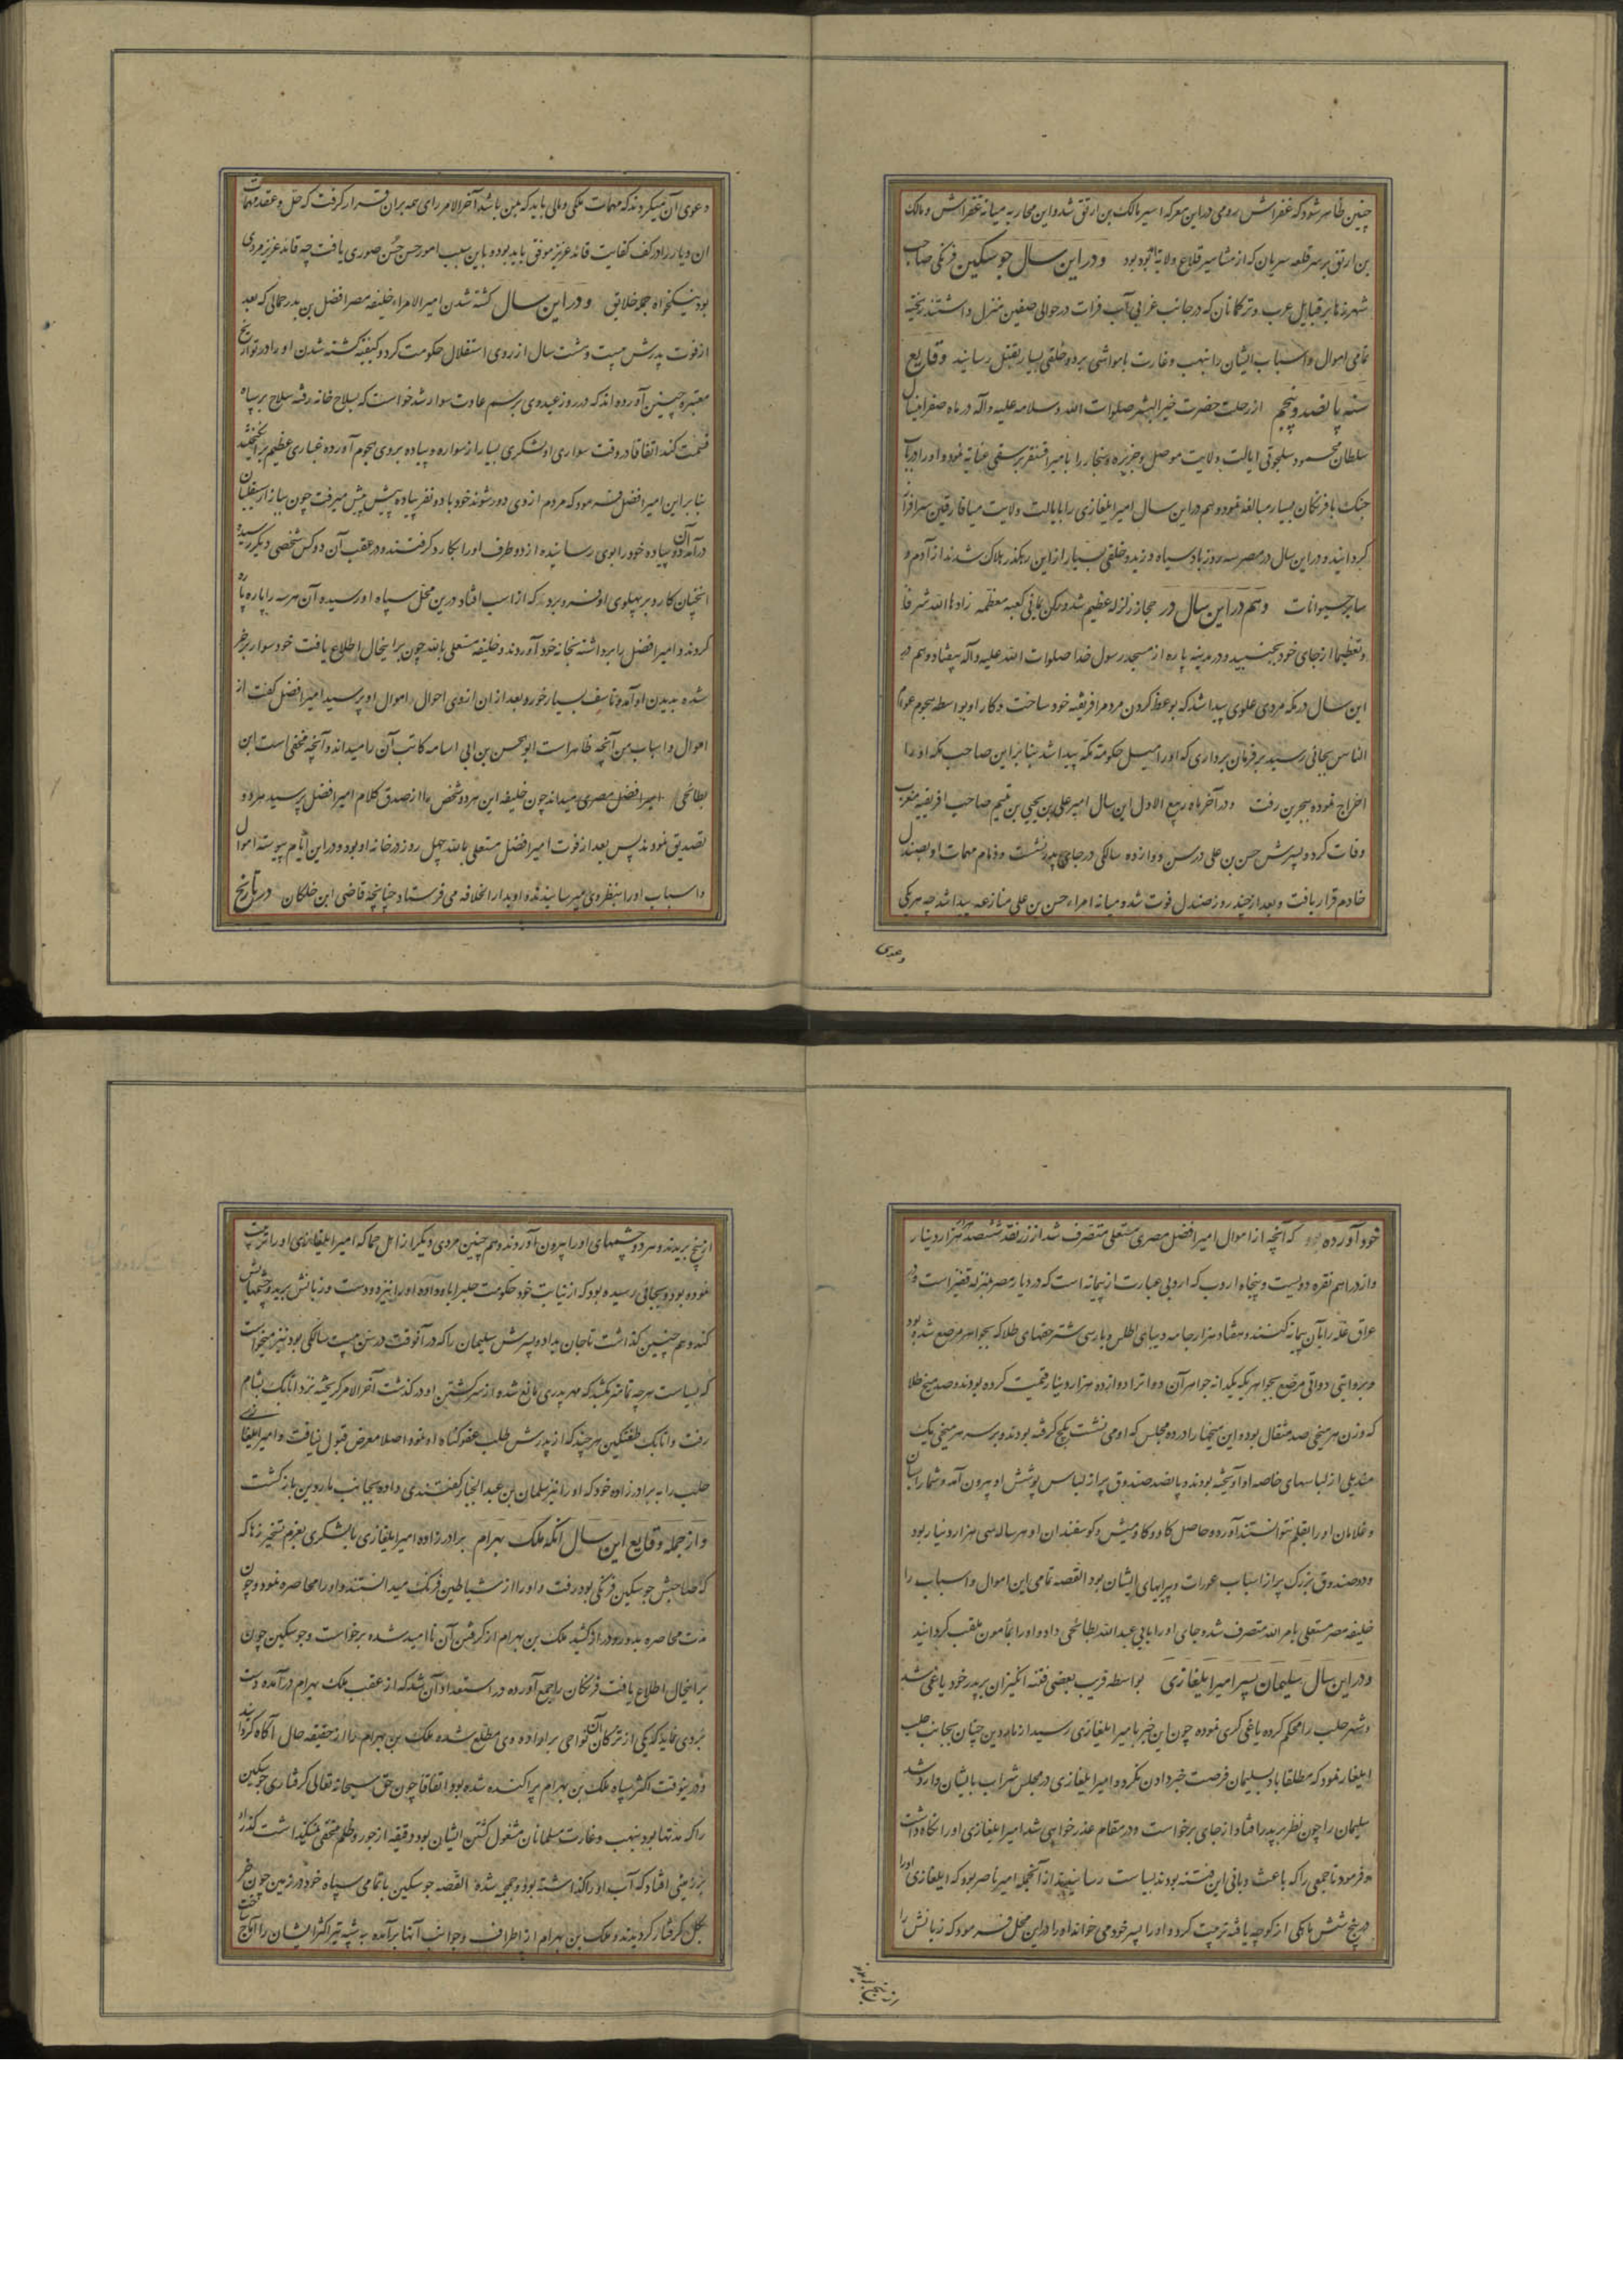 چنین ظاهر شود که غفراس رومی در این معرکه اسیر مالک بن ارتق شد و این محاربه میانه غفراس و مالک
بن ارتق بر سر قلعه سریان که از مشاهیر قلاع ولایة بود بود و در این سال جوسکین فرنکی صاحب
شهر زها بر قبایل عرب و ترکمانان که در جانب غرابی آب فرات در حوالی صفین منزل داشتند ریخته
تمامی اموال و اسباب ایشان را بنهب و غارت با مواشی برد و خلقی بسیار بقتل رسانید وقایع
سنه پانصد و پنجم از رحلت حضرت خیر البشر صلوات الله و سلامه علیه و آله در ماه صفر این سال
سلطان محمود سلجوقی ایالت ولایت موصل و جزیره و سنجار را بامیر اقسنقر برسقی عنایة نمود و او را در باب
جنک با فرنکان بسیار مبالغه نمود و هم در این سال امیر ایلغازی را بایالت ولایت میافارقین سرافراز
کردانید و در این سال در مصر سه روز باد سیاه وزید و خلقی بسیار از این رهکذر هلاک شدند از آدم و
سایر حیوانات و هم در این سال در حجاز زلزله عظیم شد و رکن یمانی کعبه معظمه زادها الله شرفا
و تعظیما از جای خود بجنبید و در مدینه پاره از مسجد رسول خدا صلوات الله علیه و آله بیفتاد و هم در
این سال در مکه مردی علوی پیدا شد که بوعظ کردن مردم را فریفته خود ساخت و کار او بواسطه هجوم عوام
الناس بجائی رسید بر فرمان برداری که او را میل حکومة مکه پیدا شد بنا بر این صاحب مکه او را
اخراج نموده ببحرین رفت و در آخر ماه ربیع الاول این سال امیر علی بن یحیی بن تمیم صاحب افریقیه مغرب
وفات کرد و پسرش حسن بن علی در سن دوازده سالکی در جای پدر نشست و زمام مهمات او بصندل
خادم قرار یافت و بعد از چند روز صندل فوت شد و میانه امراء حسن بن علی منازعه پیدا شد چه هر یکی
دعوی
دعوی آن میکردند که مهمات ملکی و مالی باید که بمن باشد آخر الامر رای همه بران قرار کرفت که حل و عقد مهمات
ان دیار را در کف کفایت قائد عزیز موفق باید بود و باین سبب امور حسن حسن صوری یافت چه قائد عزیز مردی
بود نیکخواه جمله خلایق و در این سال کشته شدن امیر الامراء خلیفه مصر افضل بن بدر جمالی که بعد
از فوت پدرش بیست و هشت سال از روی استقلال حکومت کرد و کیفیة کشته شدن او را در تواریخ
معتبره چنین آورده اند که در روز عیدی برسم عادت سوار شد خواست که بسلاح خانه رفته سلاح بر سپاه
قسمت کند اتفاقا در وقت سواری او لشکری بسیار از سواره و پیاده بروی هجوم آورده غباری عظیم برانکیختند
بنا بر این امیر افضل فرمود که مردم از وی دور شوند خود با دو نفر پیاده پیش پیش میرفت چون ببازار سیقلیان
درآمد آن دو پیاده خود را بوی رسانیده از دو طرف او را بکارد کرفتند و در عقب آن دو کس شخصی دیکر رسیده
انچنان کارد بر پهلوی او فرو برد که از اسب افتاد درین محل سپاه او رسیده آن هر سه را پاره پاره
کردند و امیر افضل را برداشته بخانه خود آوردند و خلیفه مستعلی بالله چون بر اینحال اطلاع یافت خود سوار
شده بدیدن او آمد و تاسف بسیار خورد و بعد از ان از وی احوال اموال او پرسید امیر افضل کفت از
اموال و اسباب من آنچه ظاهر است ابو الحسن بن ابی اسامه کاتب آن را میداند و آنچه مخفی است ابن
بطائحی امیر افضل مصری میداند چون خلیفه این هر دو شخص را از صدق کلام امیر افضل پرسید هر دو
تصدیق نمودند پس بعد از فوت امیر افضل مستعلی بالله چهل روز در خانه او بود و در این ایام پیوسته اموال
و اسباب او را بنظر وی میرسانیدند و او بدار الخلافه می فرستاد چنانچه قاضی ابن خلکان در تاریخ
خود آورده که آنچه از اموال امیر افضل مصری مستعلی متصرف شد از زر نقد ششصد هزار هزار دینار
و از دراهم نقره دویست و پنجاه اردب که اردبی عبارت از پیمانه است که در دیار مصر بمنزله قفیز است و در
عراق غله را بآن پیمانه کنند و هفتاد هزار جامه دیبای اطلس و بار سی شتر حقهای طلا که بجواهر مرصع شده بود
و بروایتی دواتی مرصع بجواهر یکدانه جواهر آن دوات را دوازده هزار دینار قیمت کرده بودند و صد میخ طلا
که وزن هر میخی صد مثقال بود و این میخها را در ده مجلس که او می نشست بکج کرفته بودند و بر سر هر میخی یک
مندیلی از لباسهای خاصه او آویخته بودند و پانصد صندوق پر از لباس پوشش او بیرون آمد و شمار اسبان
و غلامان او را بقلم نتوانستند آورد و حاصل کاو و کاومیش و کوسفندان او هر ساله سی هزار دینار بود
و دو صندوق بزرک پر از اسباب عورات و پیرایهای ایشان بود القصه تمامی این اموال و اسباب را
خلیفه مصر مستعلی بامر الله متصرف شد و جای او را بابی عبد الله بطائحی داد و او را بمامون ملقب کردانید
و در این سال سلیمان پسر امیر ایلغازی بواسطه فریب بعضی فتنه انکیزان بر پدر خود یاغی شد
و شهر حلب را محکم کرده یاغی کری نموده چون این خبر بامیر ایلغازی رسید از ماردین چنان بجانب حلب
ایلغار نمود که مطلقا باد بسلیمان فرصت خبر دادن نکرد و امیر ایلغازی در مجلس شراب با ایشان وارد شد
سلیمان را چون نظر بر پدر افتاد از جای برخواست و در مقام عذر خواهی شد امیر ایلغازی او را نکاه داشت
و فرمود تا جمعی را که باعث و بانی این فتنه بودند بسیاست رسانیدند از آنجمله امیر ناصر بود که ایلغازی او را
در پنج شش مالکی از کوچه یافته تربیت کرد و او را پسر خود می خواند او را در این محل فرمود که زبانش را
از بیخ بریدند
از بیخ بریدند و هر دو چشمهای او را بیرون آوردند و هم چنین مردی دیکر از اهل حما که امیر ایلغازی او را تربیت
نموده بود و بجائی رسیده بود که از نیابت خود حکومت حلب را باو داده او را نیز دو دست و زبانش برید و چشمهایش
کند و هم چنین کذاشت تا جان بداد و پسرش سلیمان را که در آنوقت در سن بیست سالکی بود نیز میخواست
که بسیاست هر چه تمامتر بکشد که مهر پدری مانع شده از سر کشتن او در کذشت آخر الامر کریخته نزد اتابک بشام
رفت و اتابک طغتکین هر چند که از پدرش طلب عفو کناه او نمود اصلا معرض قبول نیافت و امیر ایلغازی
حلب را به برادر زاده خود که او را نیز سلیمان بن عبد الجبار کفتندی داده بجانب ماردین بازکشت
و از جمله وقایع این سال آنکه ملک بهرام برادر زاده امیر ایلغازی با لشکری بعزم تسخیر زها که
که صاحبش جوسکین فرنکی بود رفت و او را از شیاطین فرنک میدانستند و او را محاصره نمود و چون
مدت محاصره بدور و دراز کشید ملک بن بهرام از کرفتن آن ناامید شده برخواست و جوسکین چون
بر اینحال اطلاع یافت فرنکان را جمع آورده در استعداد آن شد که از عقب ملک بهرام درآمده دست
بردی نماید که یکی از ترکمانان آن نواحی بر اراده وی مطلع شده ملک بن بهرام را از حقیقه حال آکاه کردانید
و در ینوقت اکثر سپاه ملک بن بهرام پراکنده شده بود اتفاقا چون حق سبحانه تعالی کرفتاری جوسکین
را که مدتها بود بنهب و غارت مسلمانان مشغول کشتن ایشان بود و دقیقه از جور و ظلم مخفی نمیکذاشت کذار
بر زمینی افتاد که آب او را کذاشته بود و جمجمه شده القصه جوسکین با تمامی سپاه خود در زمین چون خر
بکل کرفتار کردیدند و ملک بن بهرام از اطراف و جوانب آنها برآمده به شیبه تیر اکثر ایشان را آماج